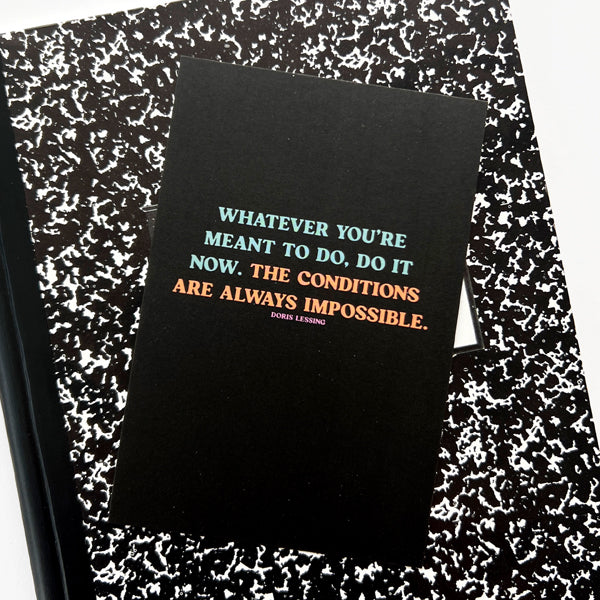 WHATEVER YOU'RE
MEANT TO DO, DO IT
NOW. THE CONDITIONS
ARE ALWAYS IMPOSSIBLE.
DORIS LESSING